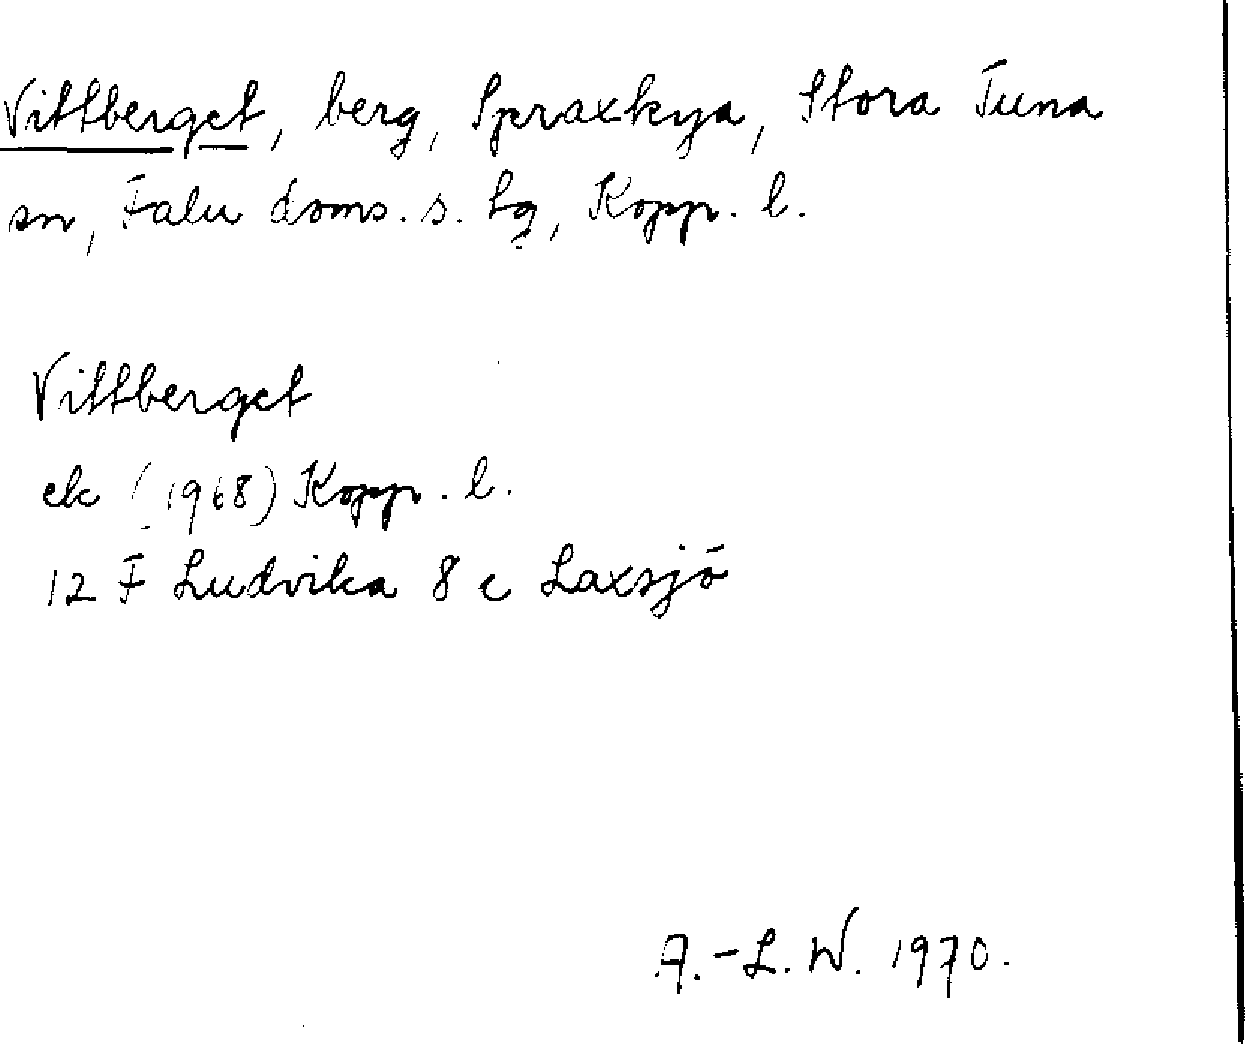 Vittberget, berg, Spraxkya, Stora Tuna
sn, Falu doms. s. hg, Kopp. l.
Vittberget
ek (1968) Kopp. l.
12 F Ludvika 8 c Laxsjö
A.-L. W. 1970.